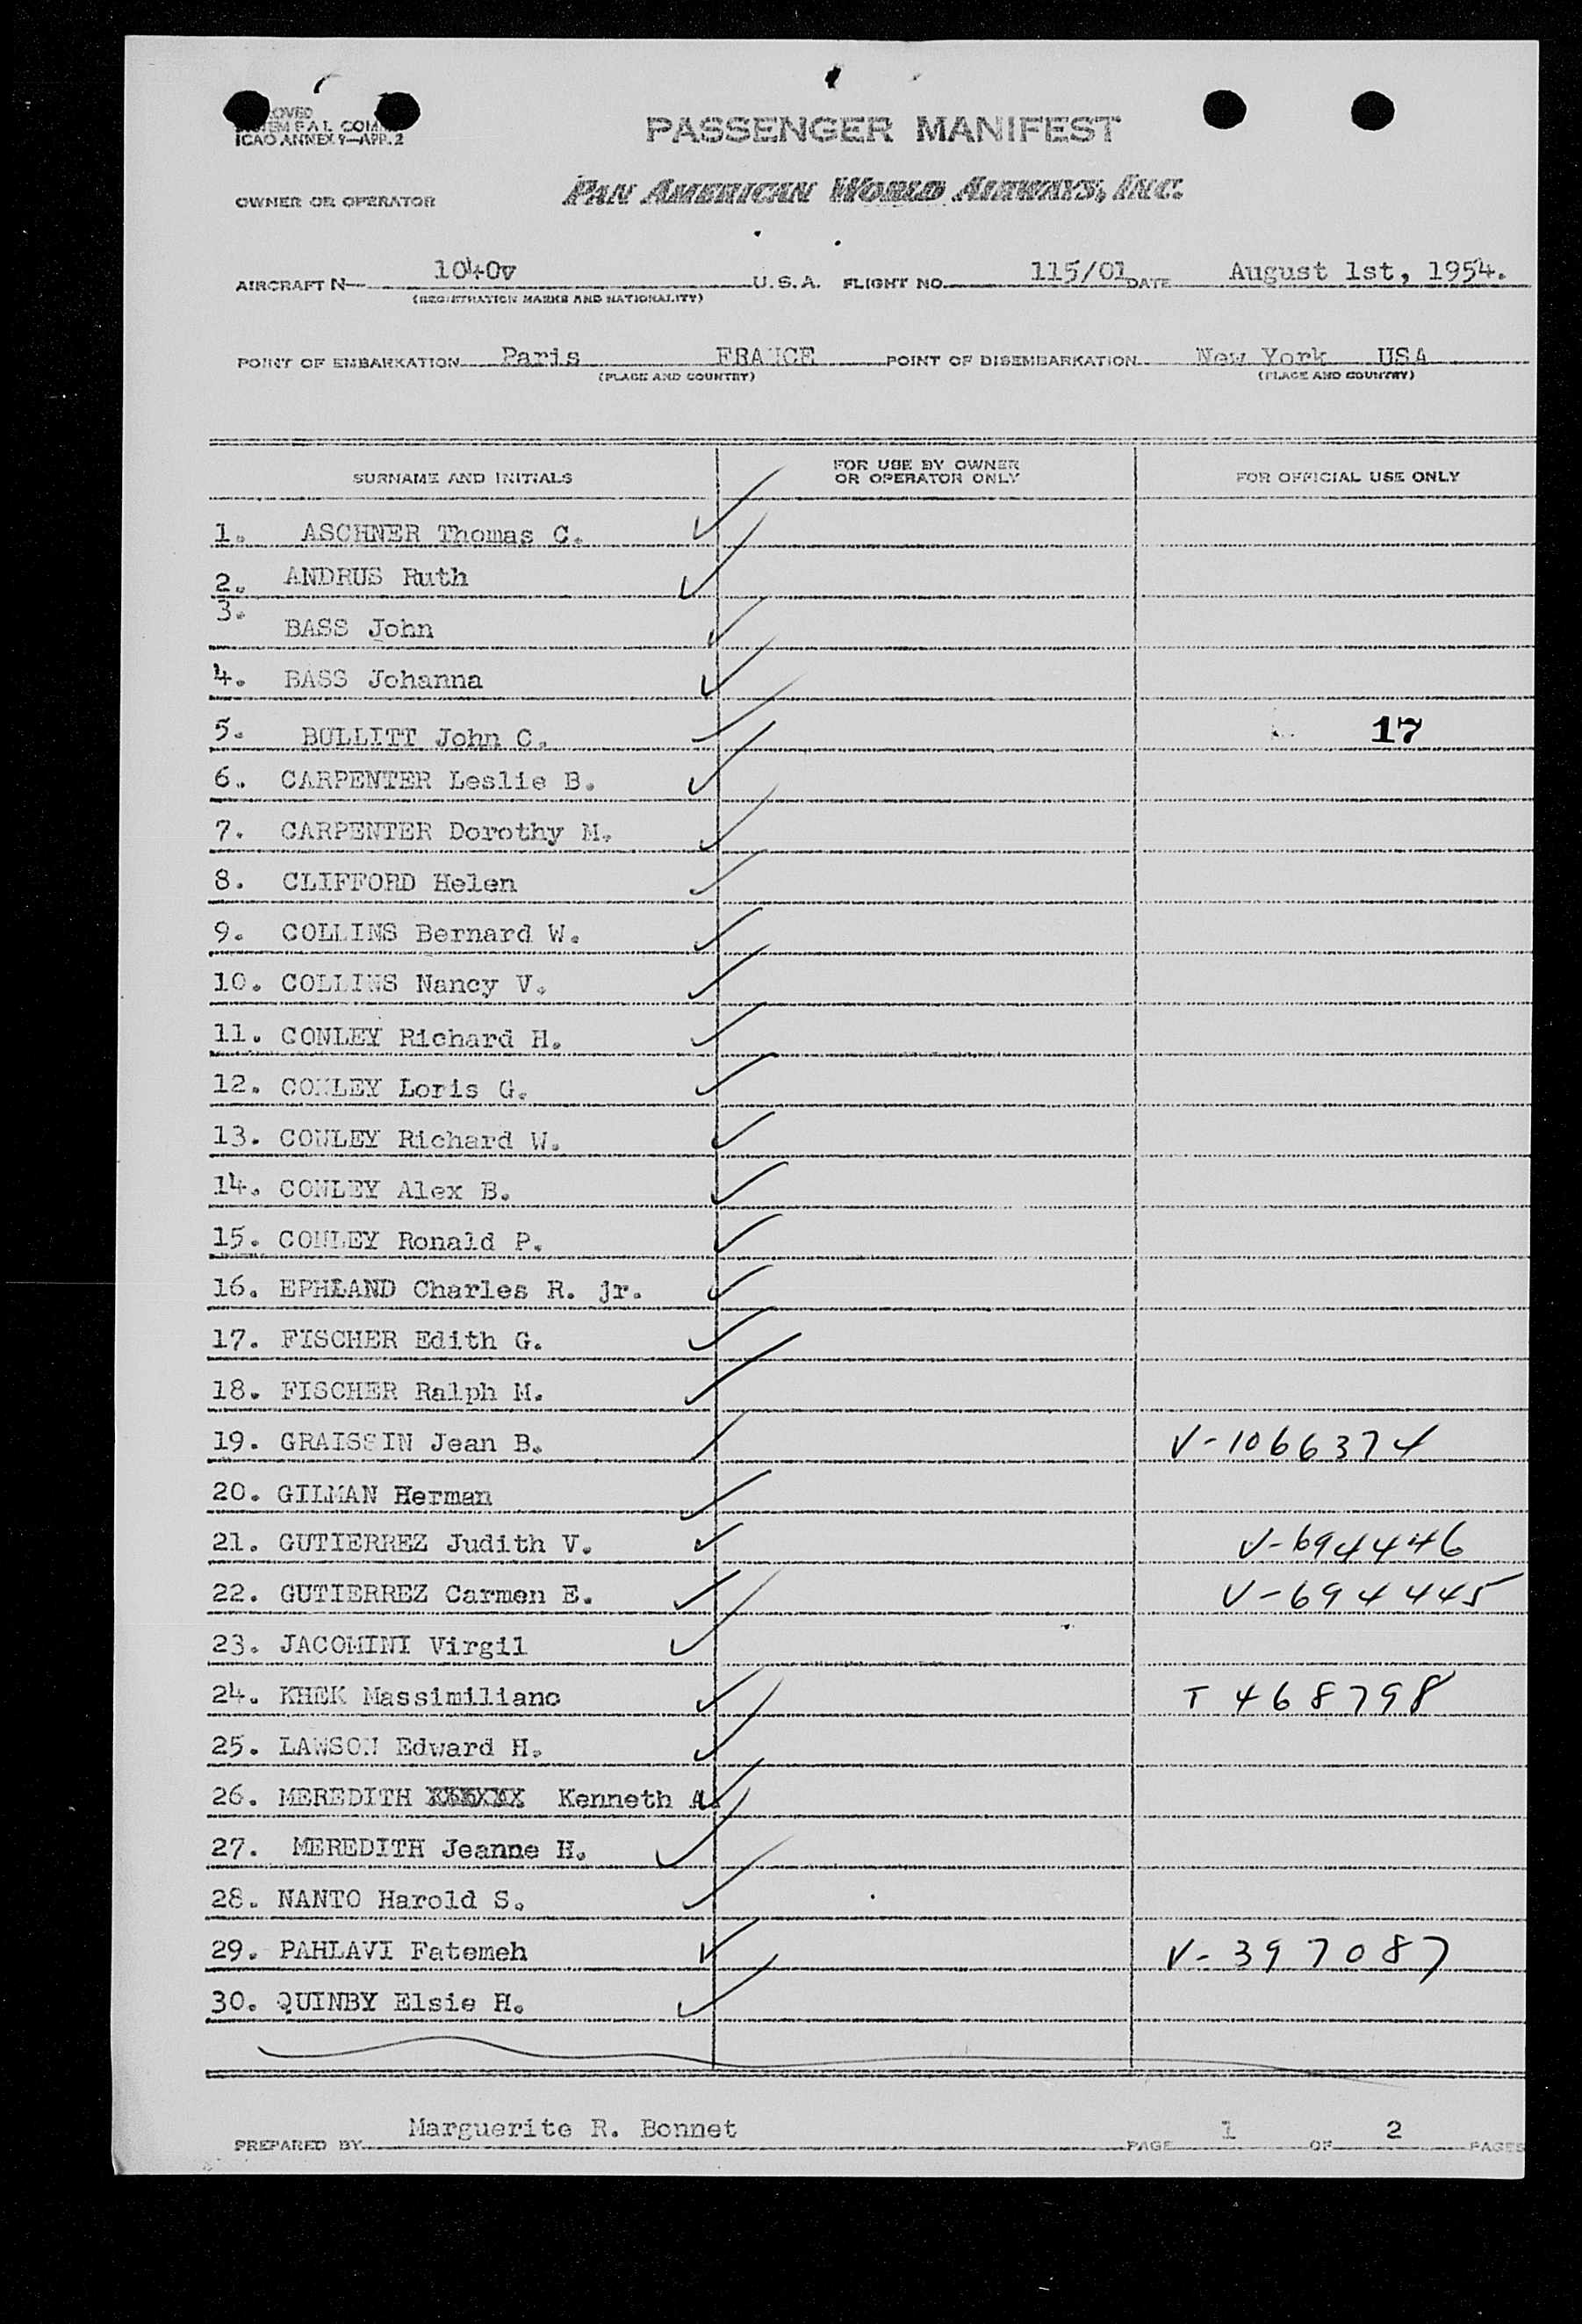 OVED
TEM F.A.L. COMM
ICAO ANNEX 9—APP. 2
PASSENGER MANIFEST
OWNER OR OPERATOR PAN AMERICAN WORLD AIRWAYS, INC.
AIRCRAFT N— 1040v U.S.A. FLIGHT NO. 115/01 DATE August 1st, 1954.
(REGISTRATION MARKS AND NATIONALITY)
POINT OF EMBARKATION Paris FRANCE POINT OF DISEMBARKATION New York USA
(PLACE AND COUNTRY) (PLACE AND COUNTRY)
SURNAME AND INITIALS FOR USE BY OWNER OR OPERATOR ONLY FOR OFFICIAL USE ONLY
1. ASCHNER Thomas C.
2. ANDRUS Ruth
3. BASS John
4. BASS Johanna
5. BULLITT John C. 17
6. CARPENTER Leslie B.
7. CARPENTER Dorothy M.
8. CLIFFORD Helen
9. COLLINS Bernard W.
10. COLLINS Nancy V.
11. CONLEY Richard H.
12. CONLEY Loris G.
13. CONLEY Richard W.
14. CONLEY Alex B.
15. CONLEY Ronald P.
16. EPHLAND Charles R. jr.
17. FISCHER Edith G.
18. FISCHER Ralph M.
19. GRAISSIN Jean B. V-1066374
20. GILMAN Herman
21. GUTIERREZ Judith V. V-694446
22. GUTIERREZ Carmen E. V-694445
23. JACOMINI Virgil
24. KHEK Massimiliano T 468798
25. LAWSON Edward H.
26. MEREDITH Kenneth A.
27. MEREDITH Jeanne H.
28. NANTO Harold S.
29. PAHLAVI Fatemeh V-397087
30. QUINBY Elsie H.
PREPARED BY Marguerite R. Bonnet PAGE 1 OF 2 PAGES